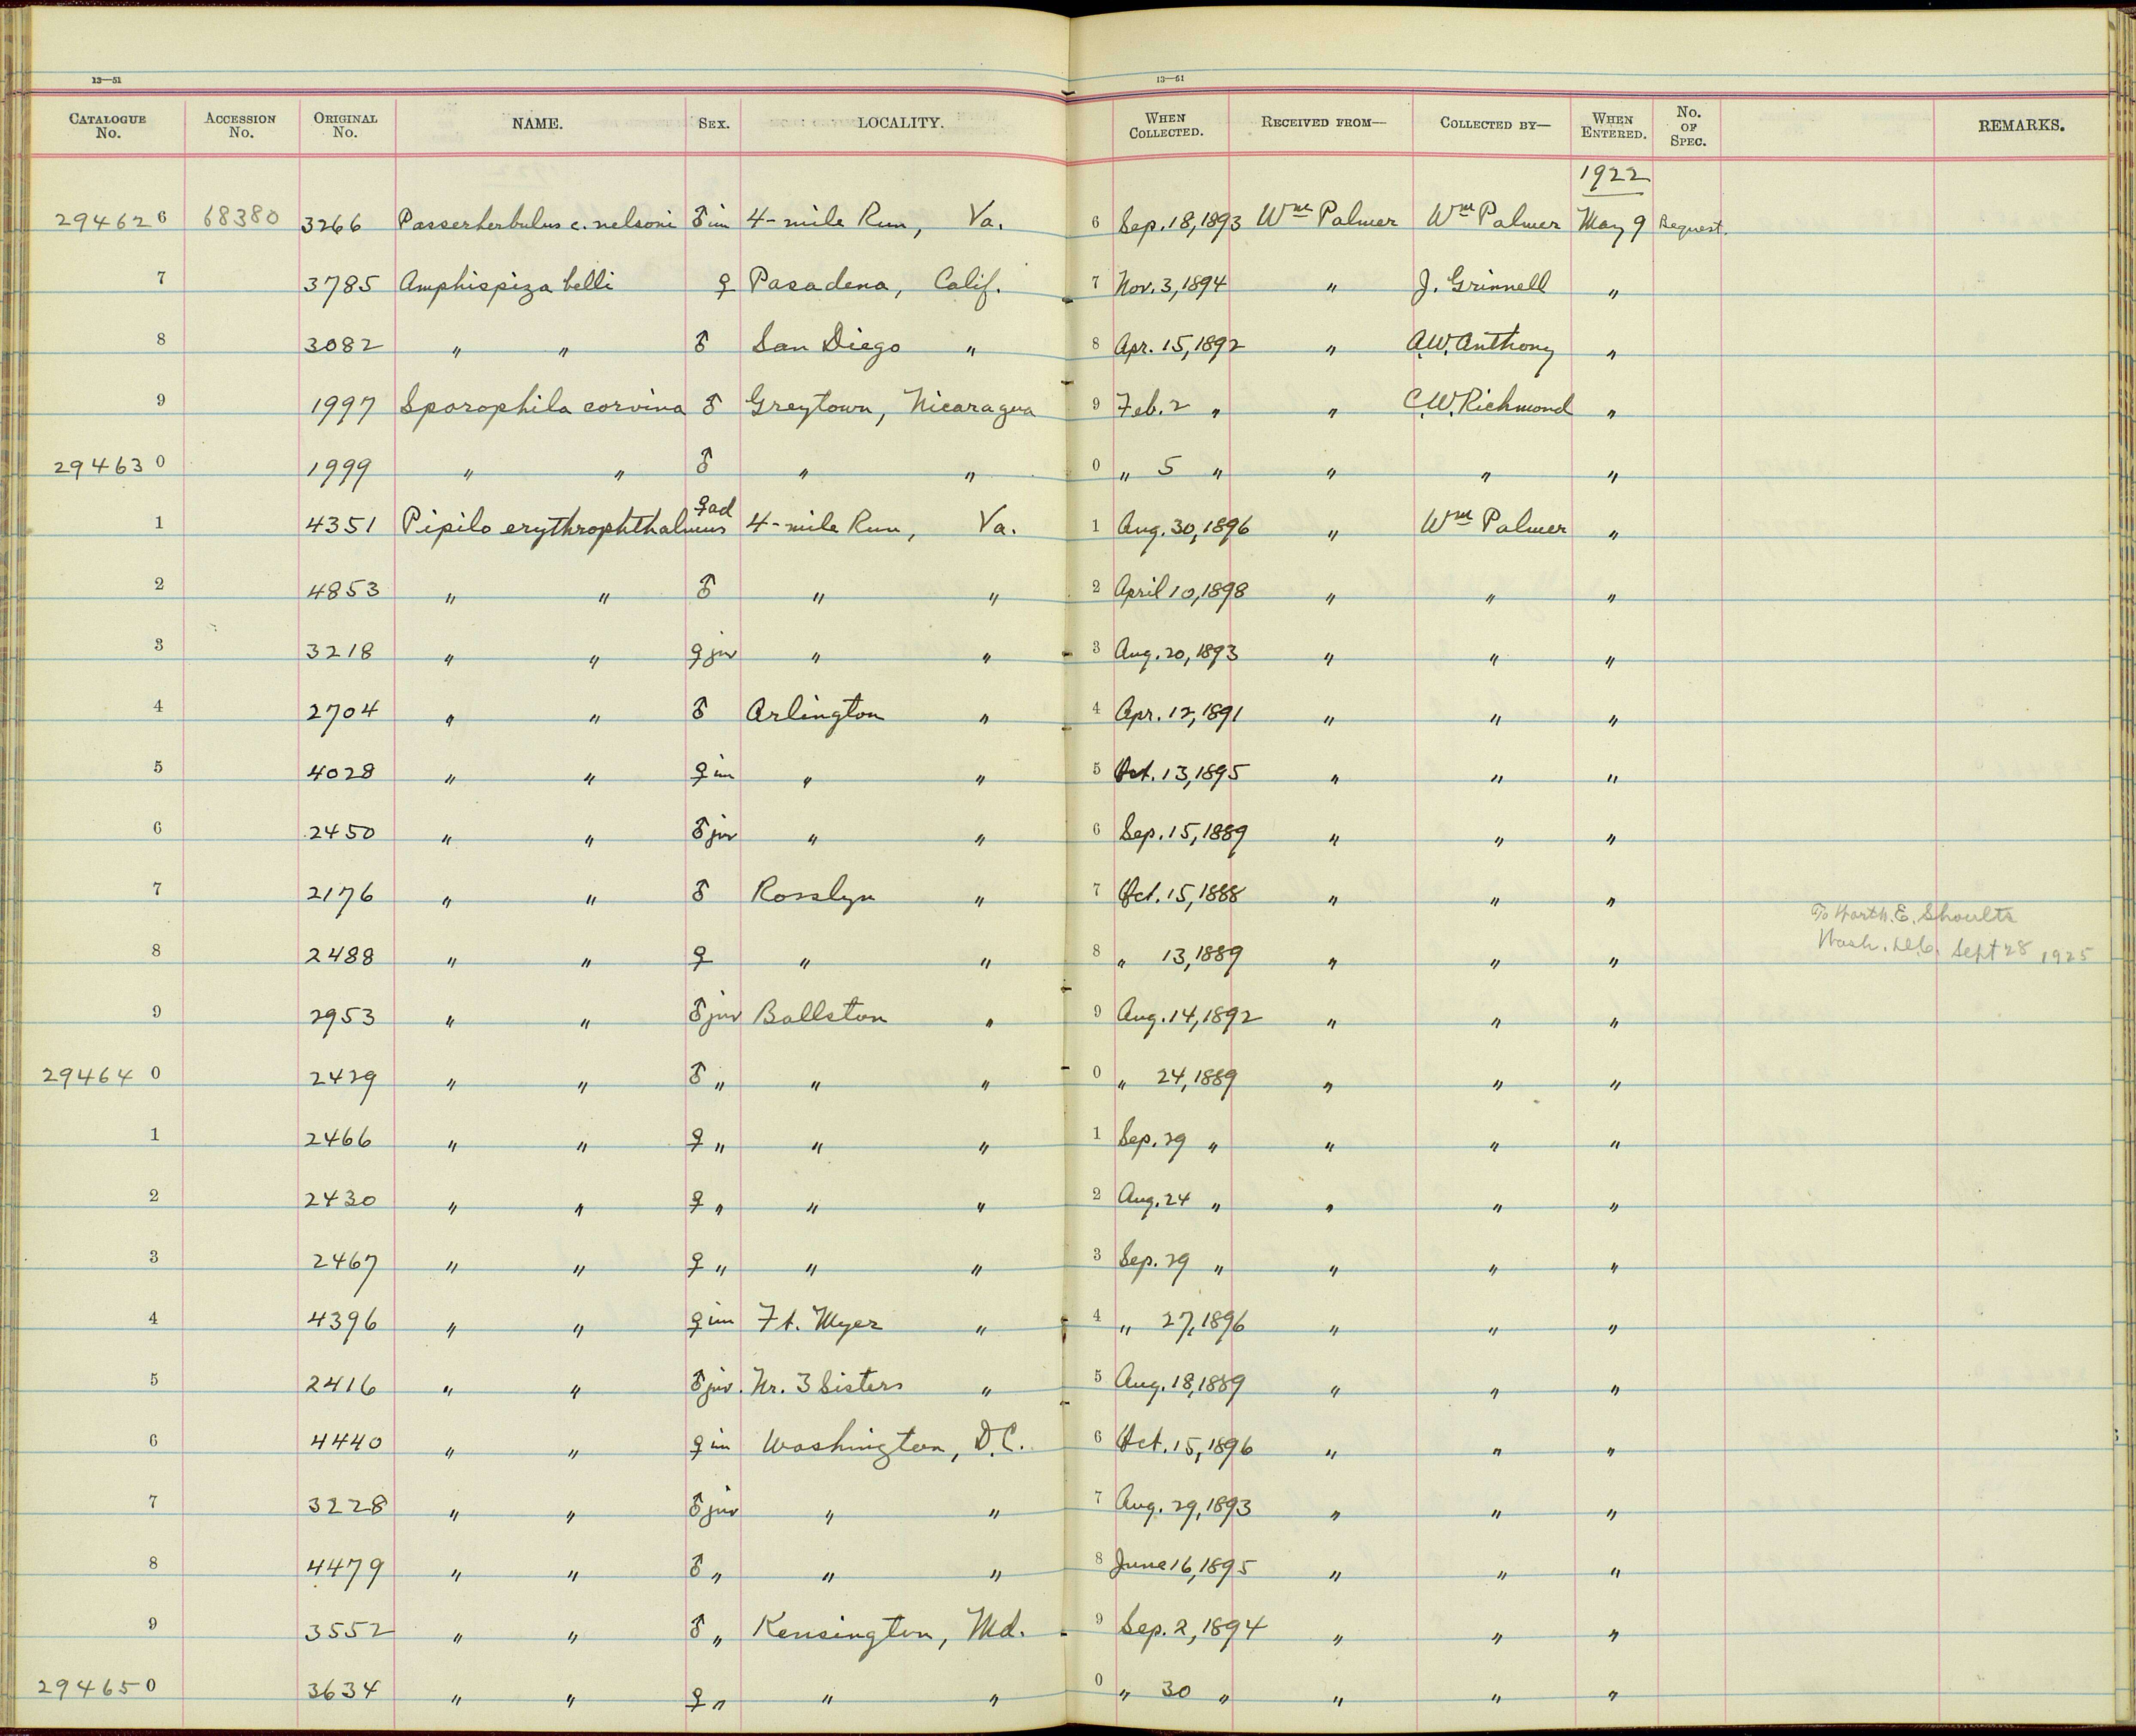 13—51 13—51
CATALOGUE No. ACCESSION No. ORIGINAL No. NAME. SEX. LOCALITY. WHEN COLLECTED. RECEIVED FROM— COLLECTED BY— WHEN ENTERED. No. OF SPEC. REMARKS.
1922
294626 68380 3266 Passerherbulus c. nelsoni ♂ im 4-mile Run, Va. 6 Sep. 18, 1893 Wm Palmer Wm Palmer May 9 Bequest.
7 3785 Amphispiza belli ♀ Pasadena, Calif. 7 Nov. 3, 1894 " J. Grinnell "
8 3082 " " ♂ San Diego " 8 Apr. 15, 1892 " A.W. Anthony "
9 1997 Sporophila corvina ♂ Greytown, Nicaragua 9 Feb. 2 " " C.W. Richmond "
294630 1999 " " ♂ " " 0 " 5 " " " "
1 4351 Pipilo erythrophthalmus ♀ ad 4-mile Run, Va. 1 Aug. 30, 1896 " Wm Palmer "
2 4853 " " ♂ " " 2 April 10, 1898 " " "
3 3218 " " ♀ juv " " 3 Aug. 20, 1893 " " "
4 2704 " " ♂ Arlington " 4 Apr. 12, 1891 " " "
5 4028 " " ♀ im " " 5 Oct. 13, 1895 " " "
6 2450 " " ♂ juv " " 6 Sep. 15, 1889 " " "
7 2176 " " ♂ Rosslyn " 7 Oct. 15, 1888 " " "
To Worth. E. Shoults
8 2488 " " ♀ " " 8 " 13, 1889 " " " Wash. D.C. Sept 28 1925
9 2953 " " ♂ juv Ballston " 9 Aug. 14, 1892 " " "
294640 2429 " " ♂ " " " 0 " 24, 1889 " " "
1 2466 " " ♀ " " " 1 Sep. 29 " " " "
2 2430 " " ♀ " " " 2 Aug. 24 " " " "
3 2467 " " ♀ " " " 3 Sep. 29 " " " "
4 4396 " " ♀ im Ft. Myer " 4 " 27, 1896 " " "
5 2416 " " ♂ juv. Nr. 3 Sisters " 5 Aug. 18, 1889 " " "
6 4440 " " ♀ im Washington, D.C. 6 Oct. 15, 1896 " " "
7 3228 " " ♂ juv " " 7 Aug. 29, 1893 " " "
8 4479 " " ♂ " " " 8 June 16, 1895 " " "
9 3552 " " ♂ " Kensington, Md. 9 Sep. 2, 1894 " " "
294650 3634 " " ♀ " " " 0 " 30 " " " "